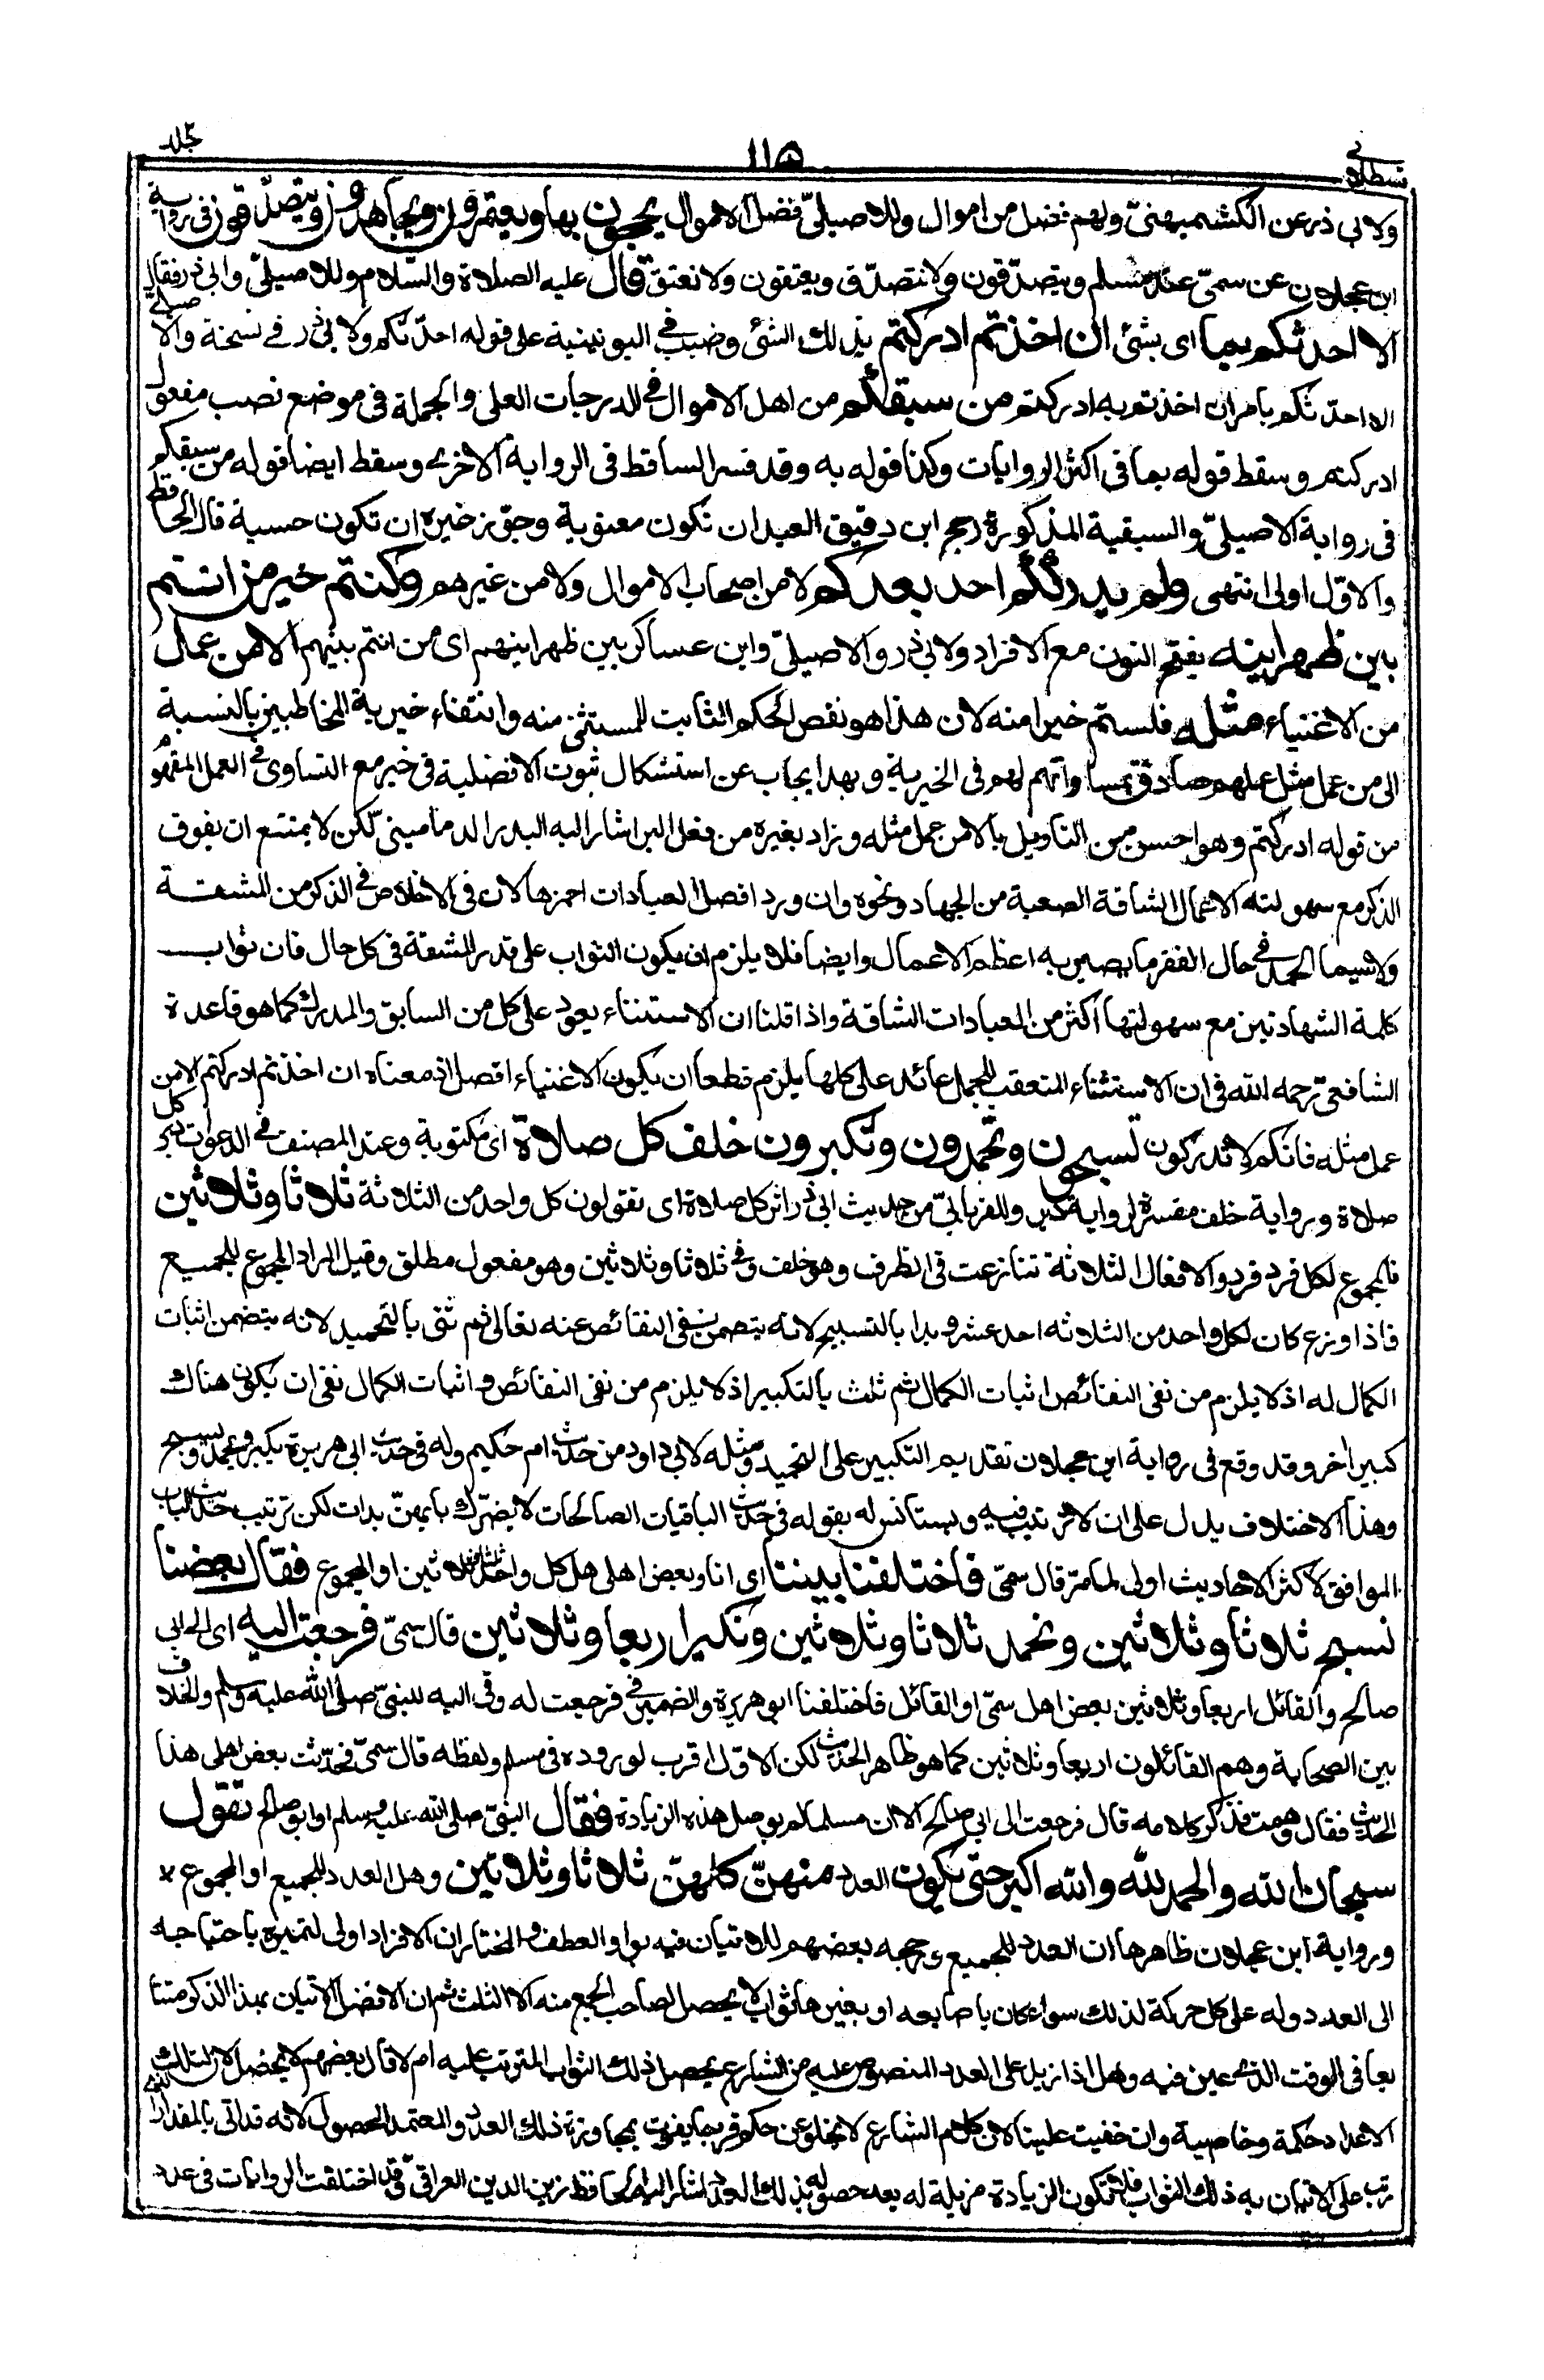 قسطلانی ١١٥ جلد
ولابی ذر عن الکشمیهنیّ ولهم فضل من اموال وللاصیلیّ فضل الاموال یحجون بها ویعتمرون ویجاهدون ویتصدّقون فی روایة
ابن عجلان عن سمیّ عند مسلم ویتصدّقون ولا نتصدّق ویعتقون ولا نعتق قال علیه الصلاة والسّلام وللاصیلیّ وابی ذر فقال
الا احدثکم بما ای بشئ ان اخذتم ادرکتم بذلك الشئ وضبب فی الیونینیة علی قوله احدّثکم ولابی ذر فی نسخة والاصیلی
الا احدّثکم بامر ان اخذتم به ادرکتم من سبقکم من اهل الاموال فی الدرجات العلی والجملة فی موضع نصب مفعول
ادرکتم وسقط قوله بما فی اکثر الروایات وکذا قوله به وقد فسر الساقط فی الروایة الاخری وسقط ایضا قوله من سبقکم
فی روایة الاصیلیّ والسبقیة المذکورة رجح ابن دقیق العید ان تکون معنویة وجوّز غیره ان تکون حسیة قال الحافظ
والاوّل اولی انتهی ولم یدرککم احد بعدکم لا من اصحاب الاموال ولا من غیرهم وکنتم خیر من انتم
بین ظهرانیه بفتح النون مع الافراد ولابی ذر والاصیلیّ وابن عساکر بین ظهرانیهم ای من انتم بینهم الا من عمل
من الاغنیاء مثله فلستم خیرا منه لان هذا هو نقض الحکم الثابت للمستثنی منه وانتفاء خیریة المخاطبین بالنسبة
الی من عمل مثل عملهم صادق بمساواتهم لهم فی الخیریة وبهذا یجاب عن استشکال ثبوت الافضلیة فی خیر مع التساوی فی العمل المفهوم
من قوله ادرکتم وهو احسن من التاویل بالا من عمل مثله وزاد بغیره من فعل البر اشار الیه البدر الدمامینی لکن لا یمتنع ان یفوق
الذکر مع سهولته الاعمال الشاقة الصعبة من الجهاد ونحوه وان ورد افضل العبادات احمزها لان فی الاخلاص فی الذکر من المشقة
ولا سیما الحمد فی حال الفقر ما یصیر به اعظم الاعمال وایضا فلا یلزم ان یکون الثواب علی قدر المشقة فی کل حال فان ثواب
کلمة الشهادتین مع سهولتها اکثر من العبادات الشاقة واذا قلنا ان الاستثناء یعود علی کل من السابق والمدرك کما هو قاعدة
الشافعیّ رحمه الله فی ان الاستثناء المتعقب للجمل عائد علی کلها یلزم قطعا ان یکون الاغنیاء افضل اذ معناه ان اخذتم ادرکتم الا من
عمل مثله فانکم لا تدرکون تسبحون وتحمدون وتکبرون خلف کل صلاة ای مکتوبة وعند المصنف فی الدعوات دبر کل
صلاة وروایة خلف مفسرة لروایة دبر وللفریابیّ من حدیث ابی ذر اثر کل صلاة ای تقولون کل واحد من الثلاثة ثلاثا وثلاثین
فالمجموع لکل فرد فرد والافعال الثلاثة تنازعت فی الظرف وهو خلف وفی ثلاثا وثلاثین وهو مفعول مطلق وقیل المراد المجموع للجمیع
فاذا وزع کان لکل واحد من الثلاثة احد عشر وبدا بالتسبیح لانه یتضمن نفی النقائص عنه تعالی ثم ثنی بالتحمید لانه یتضمن اثبات
الکمال له اذ لا یلزم من نفی النقائص اثبات الکمال ثم ثلث بالتکبیر اذ لا یلزم من نفی النقائص واثبات الکمال نفی ان یکون هناك
کبیر اخر وقد وقع فی روایة ابن عجلان تقدیم التکبیر علی التحمید ومثله لابی داود من حدیث ام حکیم وله فی حدیث ابی هریرة یکبر ویحمد ویسبح
وهذا الاختلاف یدل علی ان لا ترتیب فیه ویستانس له بقوله فی حدیث الباقیات الصالحات لا یضرّك بایهنّ بدات لکن ترتیب حدیث الباب
الموافق لاکثر الاحادیث اولی لما مرّ قال سمیّ فاختلفنا بیننا ای انا وبعض اهلی هل کل واحد ثلاثا وثلاثین او المجموع فقال بعضنا
نسبح ثلاثا وثلاثین ونحمد ثلاثا وثلاثین ونکبر اربعا وثلاثین قال سمیّ فرجعت الیه ای الی ابی
صالح والقائل اربعا وثلاثین بعض اهل سمیّ او القائل فاختلفنا ابو هریرة والضمیر فی فرجعت له وفی الیه للنبیّ صلی الله علیه وسلم والخلاف
بین الصحابة وهم القائلون اربعا وثلاثین کما هو ظاهر الحدیث لکن الاوّل اقرب لوروده فی مسلم ولفظه قال سمیّ فحدّثت بعض اهلی هذا
الحدیث فقال وهمت فذکر کلامه قال فرجعت الی ابی صالح الا ان مسلما لم یوصل هذه الزیادة فقال النبیّ صلی الله علیه وسلم او ابو صالح تقول
سبحان الله والحمد لله والله اکبر حتی یکون العدد منهنّ کلهنّ ثلاثا وثلاثین وهل العدد للجمیع او المجموع *
وروایة ابن عجلان ظاهرها ان العدد للجمیع ورجحه بعضهم للاتیان فیه بواو العطف والمختار ان الافراد اولی لتمیزه باحتیاجه
الی العدد وله علی کل حرکة لذلك سواء کان باصابعه او بغیرها ثواب لا یحصل لصاحب الجمع منه الا الثلث ثم ان الافضل الاتیان بهذا الذکر متتا
بعا فی الوقت الذی عین فیه وهل اذا زید علی العدد المنصوص علیه من الشارع یحصل ذلك الثواب المترتب علیه ام لا قال بعضهم لا یحصل لان لتلك
الاعداد حکمة وخاصیة وان خفیت علینا لان کلام الشارع لا یخلو عن حکم فربما یفوت بمجاوزة ذلك العدد والمعتمد الحصول لانه قد اتی بالمقدار الذی
رتب علی الاتیان به ذلك الثواب فلا تکون الزیادة مزیلة له بعد حصوله بذلك العدد اشار الیه الحافظ زین الدین العراقیّ وقد اختلفت الروایات فی عدد